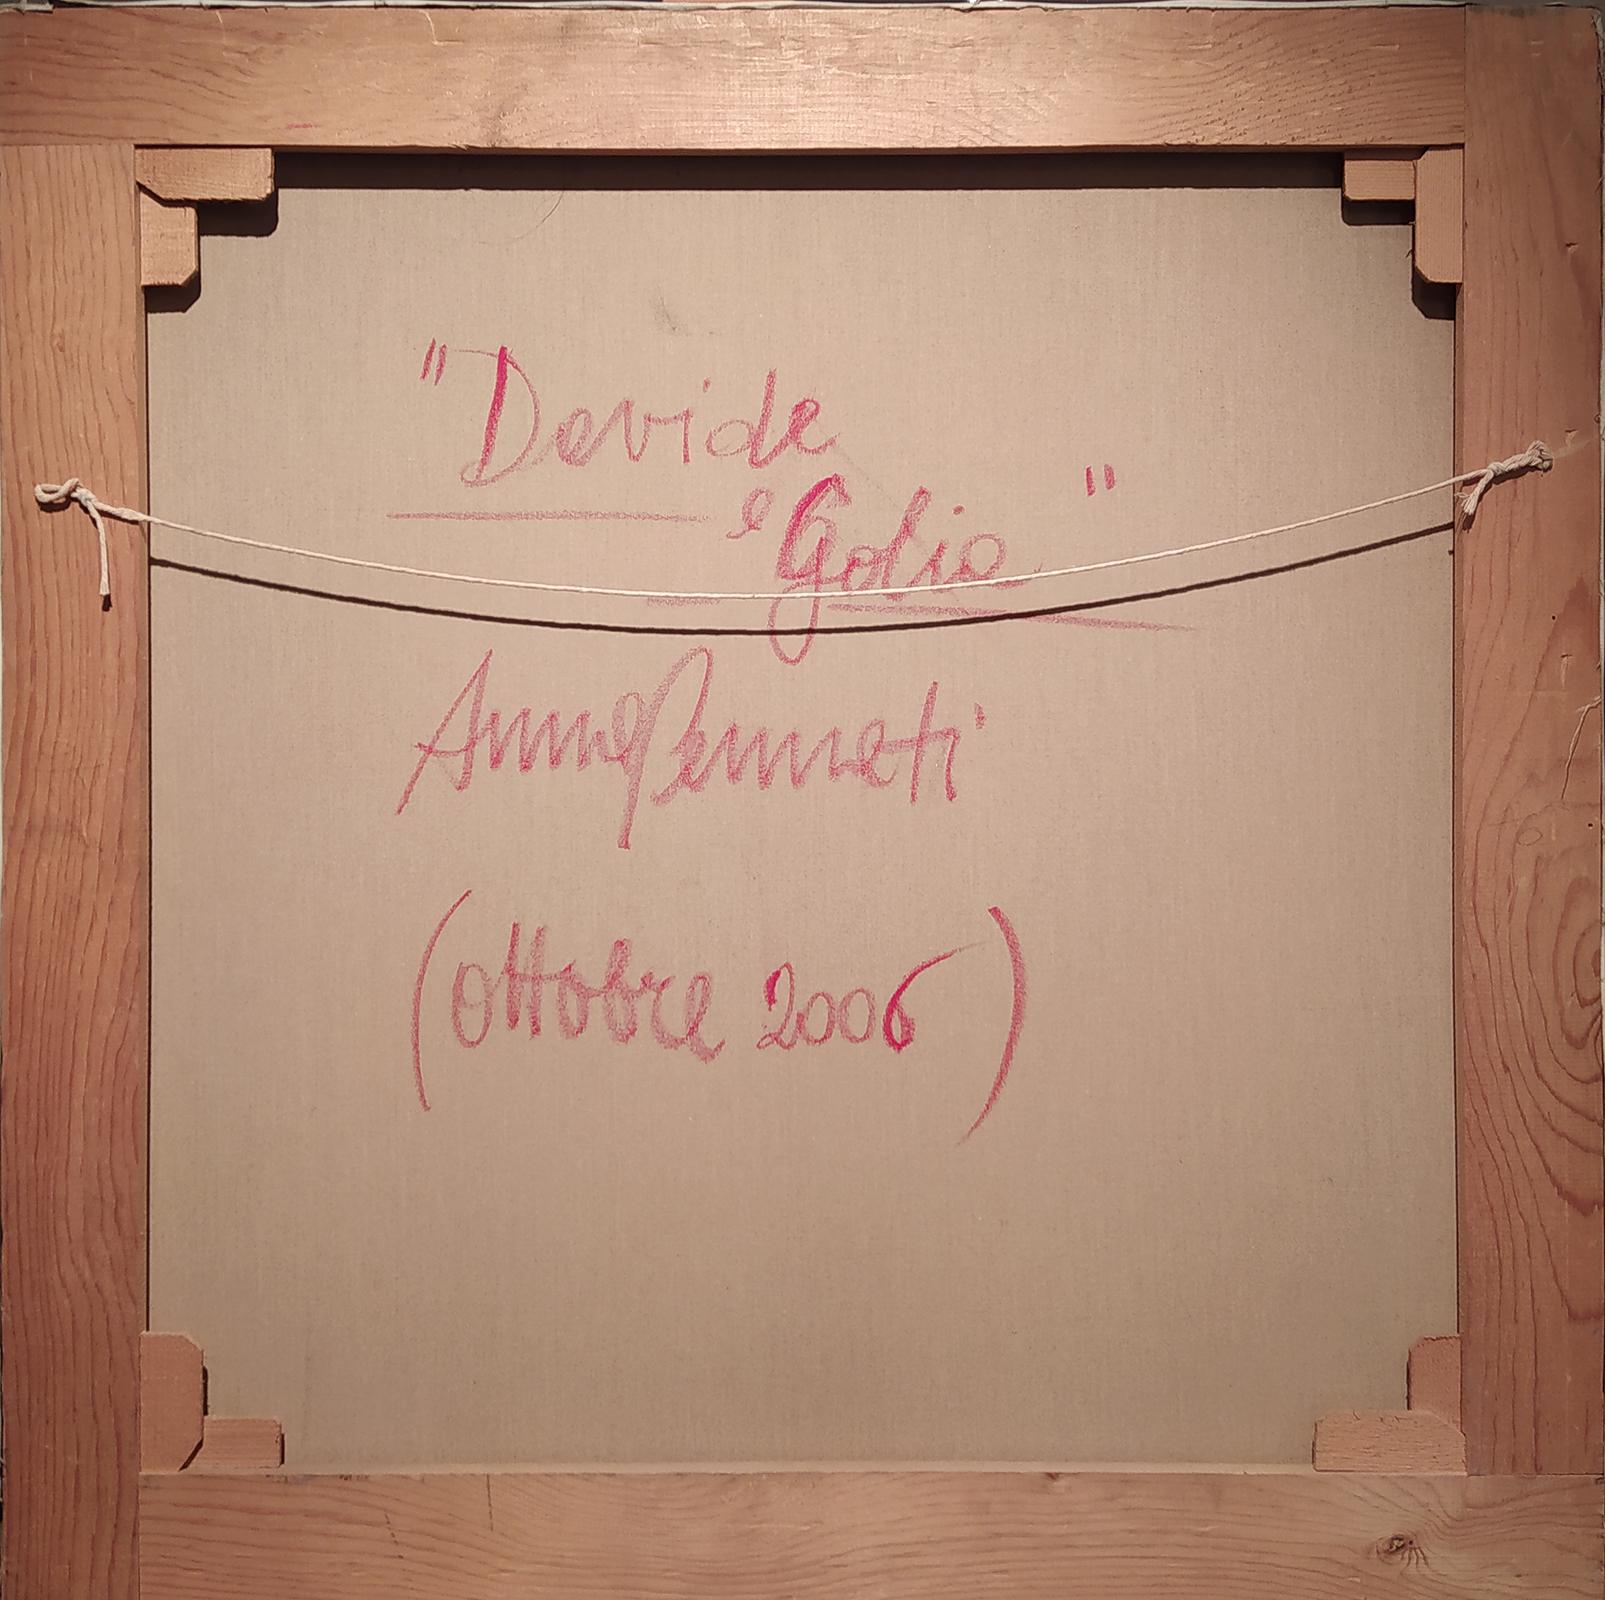 "Davide
e Golia"
Anna Pennati
(ottobre 2006)